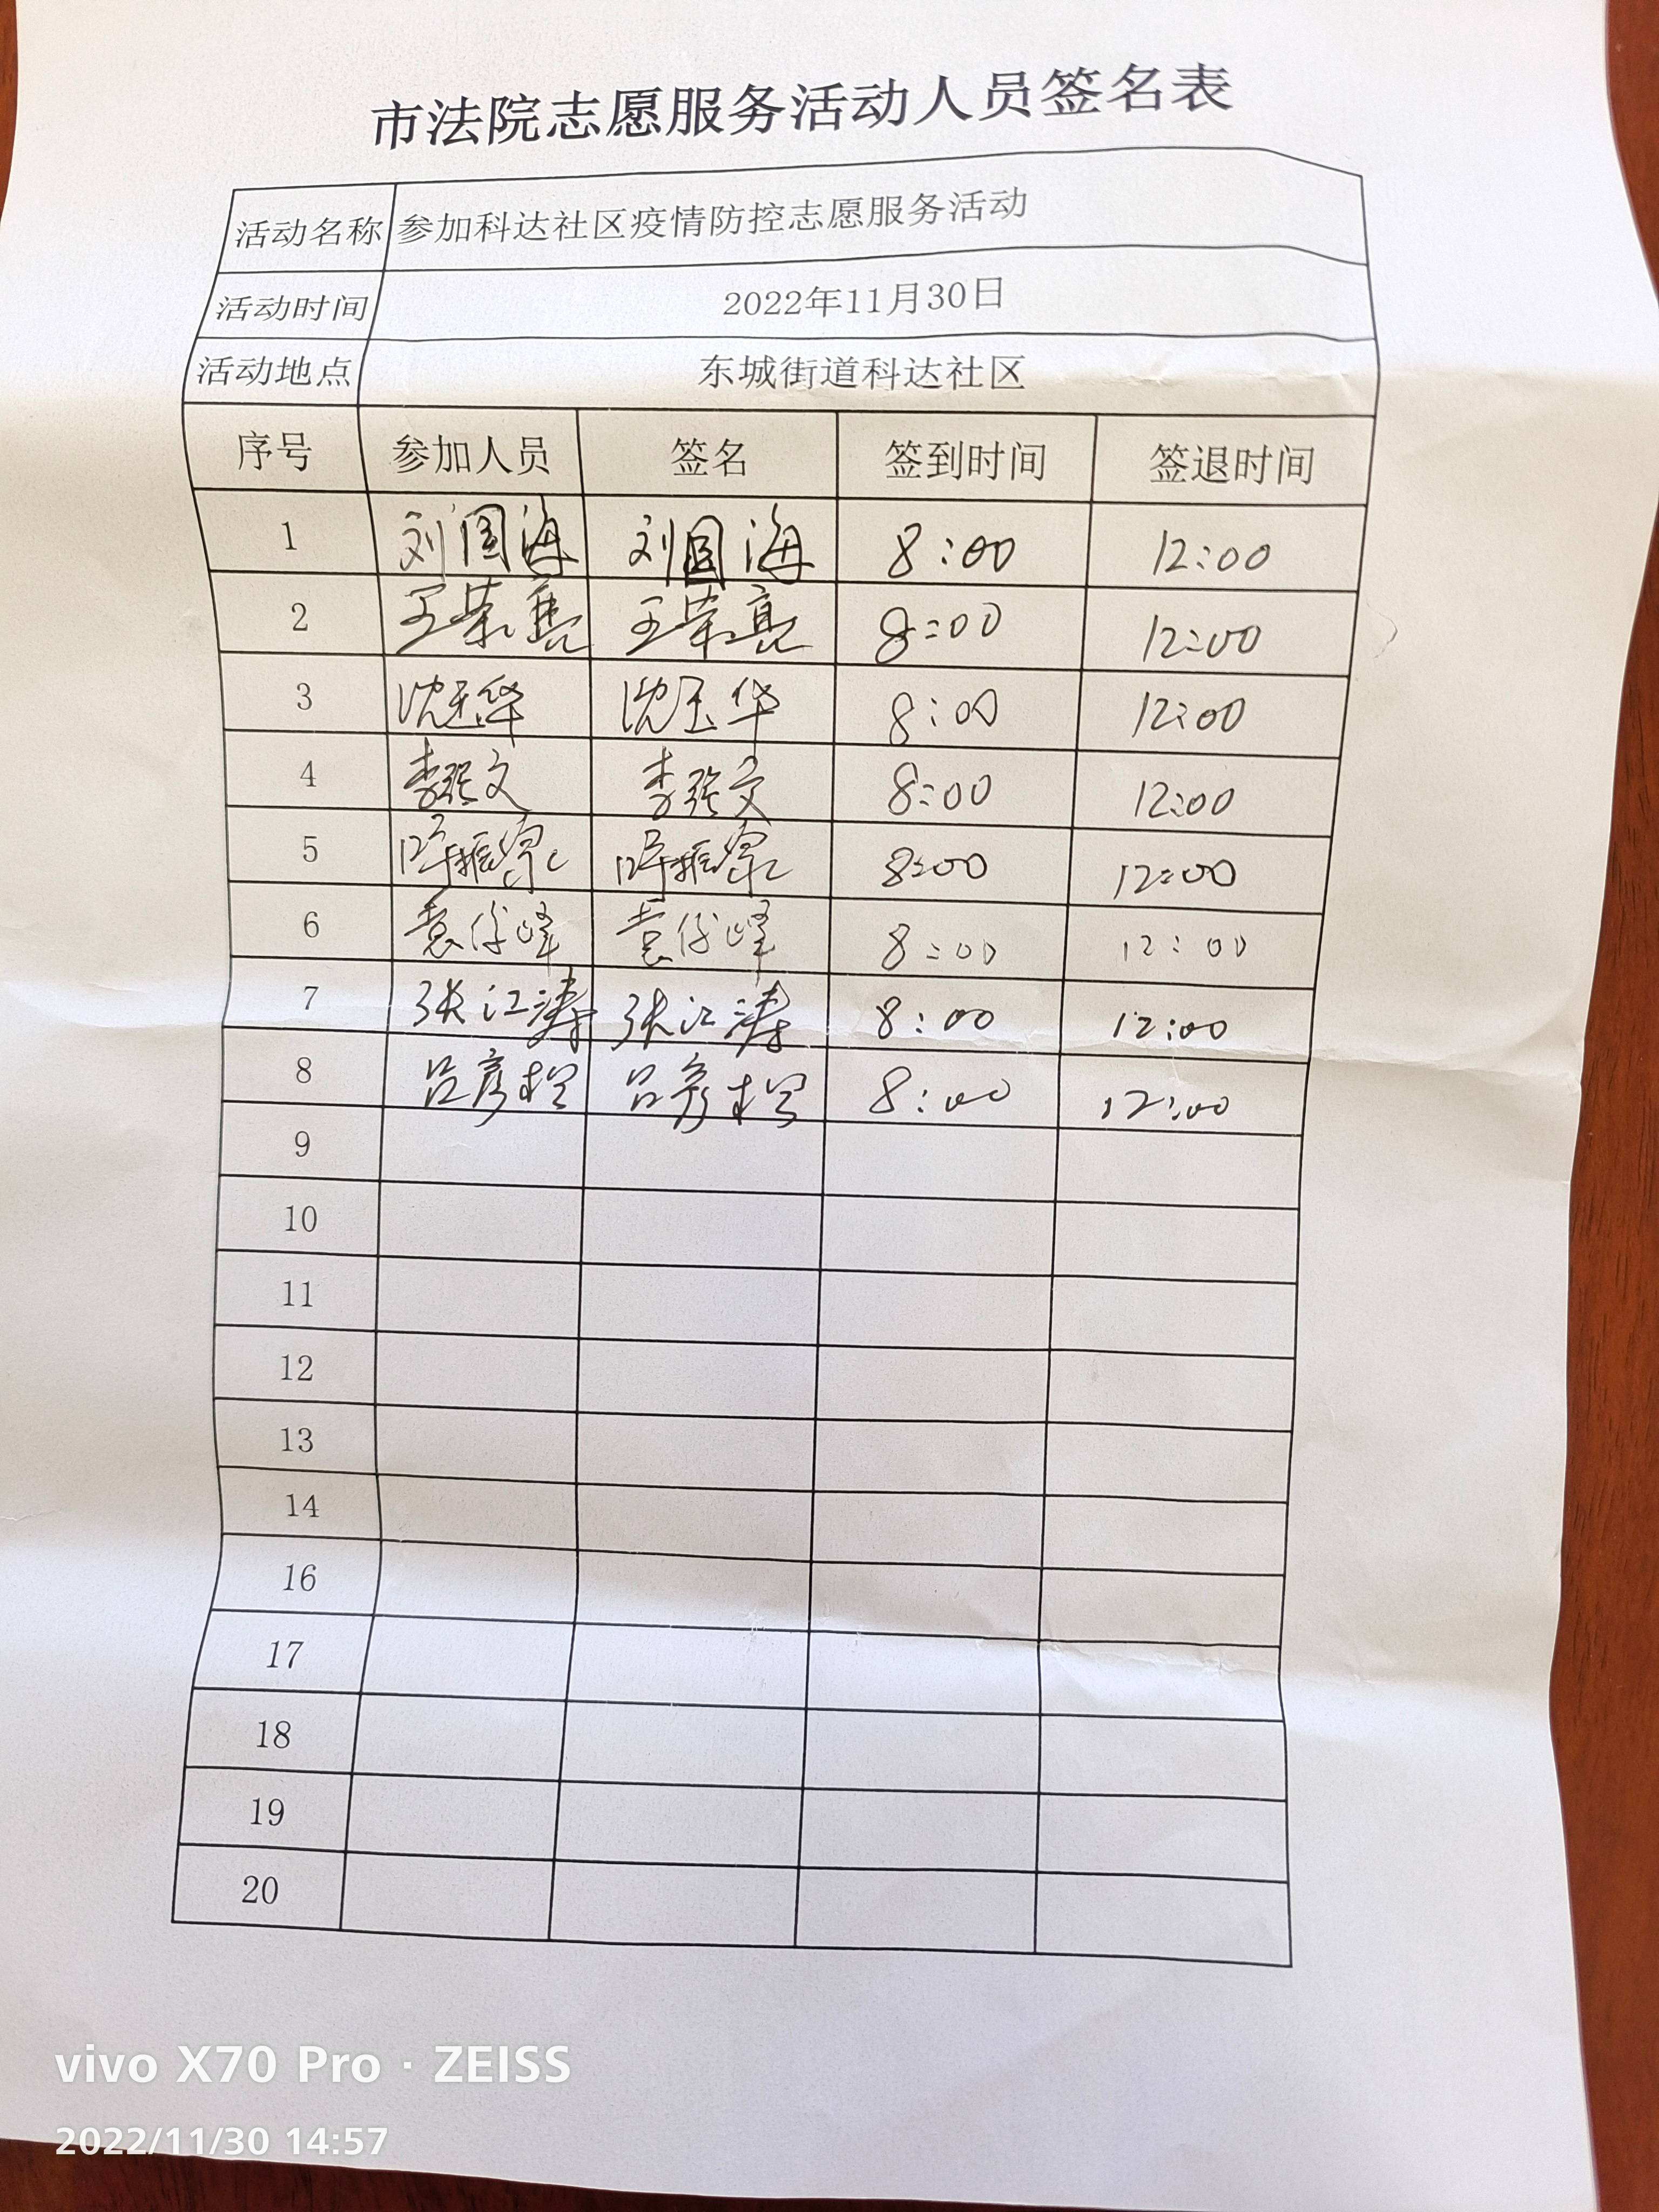 市法院志愿服务活动人员签名表
活动名称 参加科达社区疫情防控志愿服务活动
活动时间 2022年11月30日
活动地点 东城街道科达社区
序号 参加人员 签名 签到时间 签退时间
1 刘国海 刘国海 8:00 12:00
2 王荣亮 王荣亮 8:00 12:00
3 沈玉华 沈玉华 8:00 12:00
4 李强文 李强文 8:00 12:00
5 8:00 12:00
6 袁俊峰 袁俊峰 8:00 12:00
7 张江涛 张江涛 8:00 12:00
8 吕彦 吕彦 8:00 12:00
9
10
11
12
13
14
16
17
18
19
20
vivo X70 Pro · ZEISS
2022/11/30 14:57